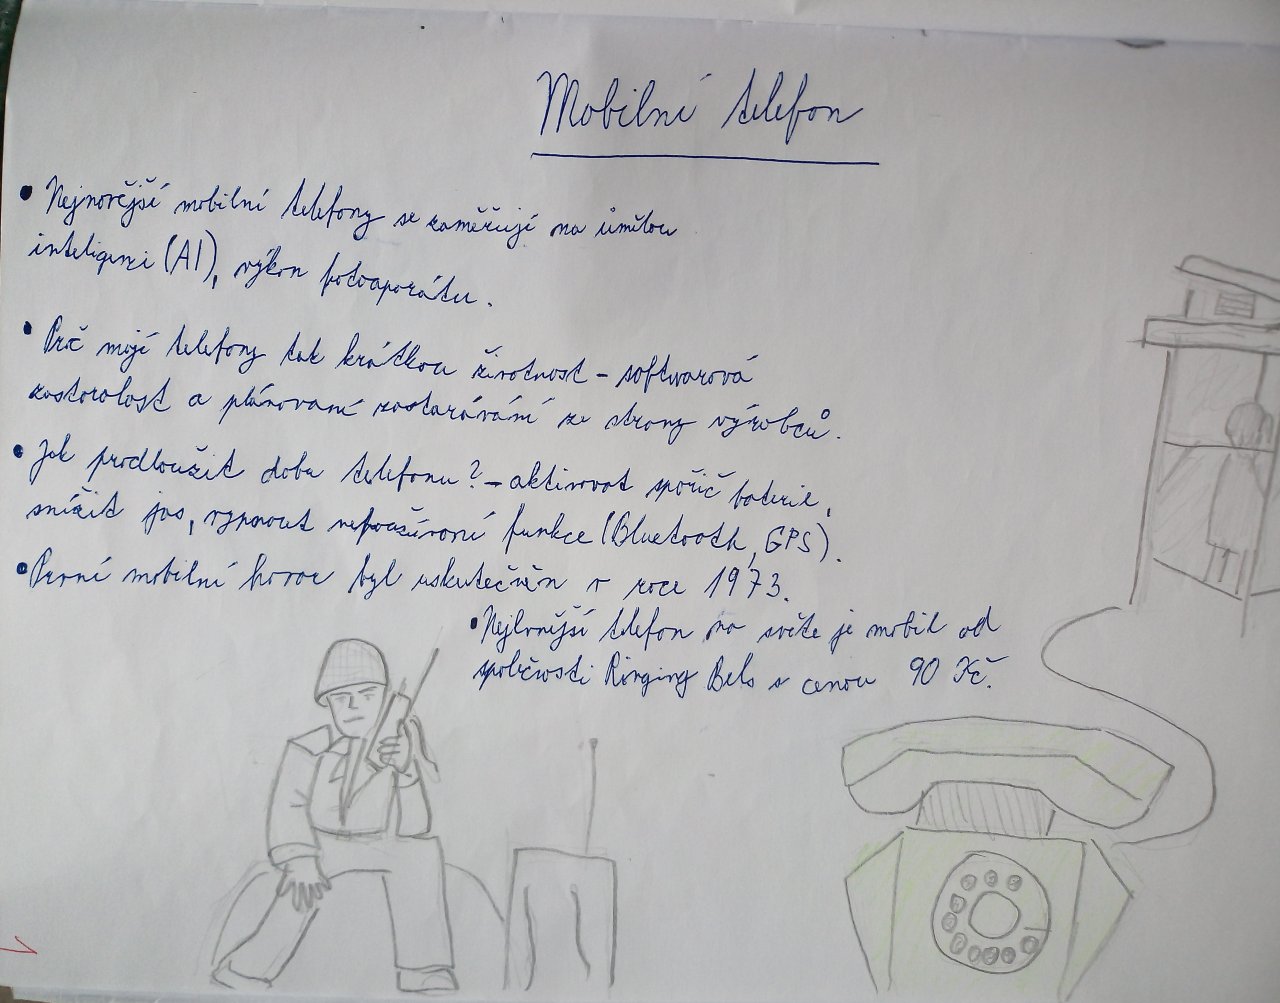 Mobilní telefon
• Nejnovější mobilní telefony se zaměřují na umělou
inteligenci (AI), výkon fotoaparátu.
• Proč mají telefony tak krátkou životnost – softwarová
zastaralost a plánované zastarávání ze strany výrobců.
• Jak prodloužit dobu telefonu? – aktivovat spořič baterie,
snížit jas, vypnout nepoužívané funkce (Bluetooth, GPS).
• První mobilní hovor byl uskutečněn v roce 1973.
• Nejlevnější telefon na světe je mobil od
společnosti Ringing Bels s cenou 90 Kč.
1